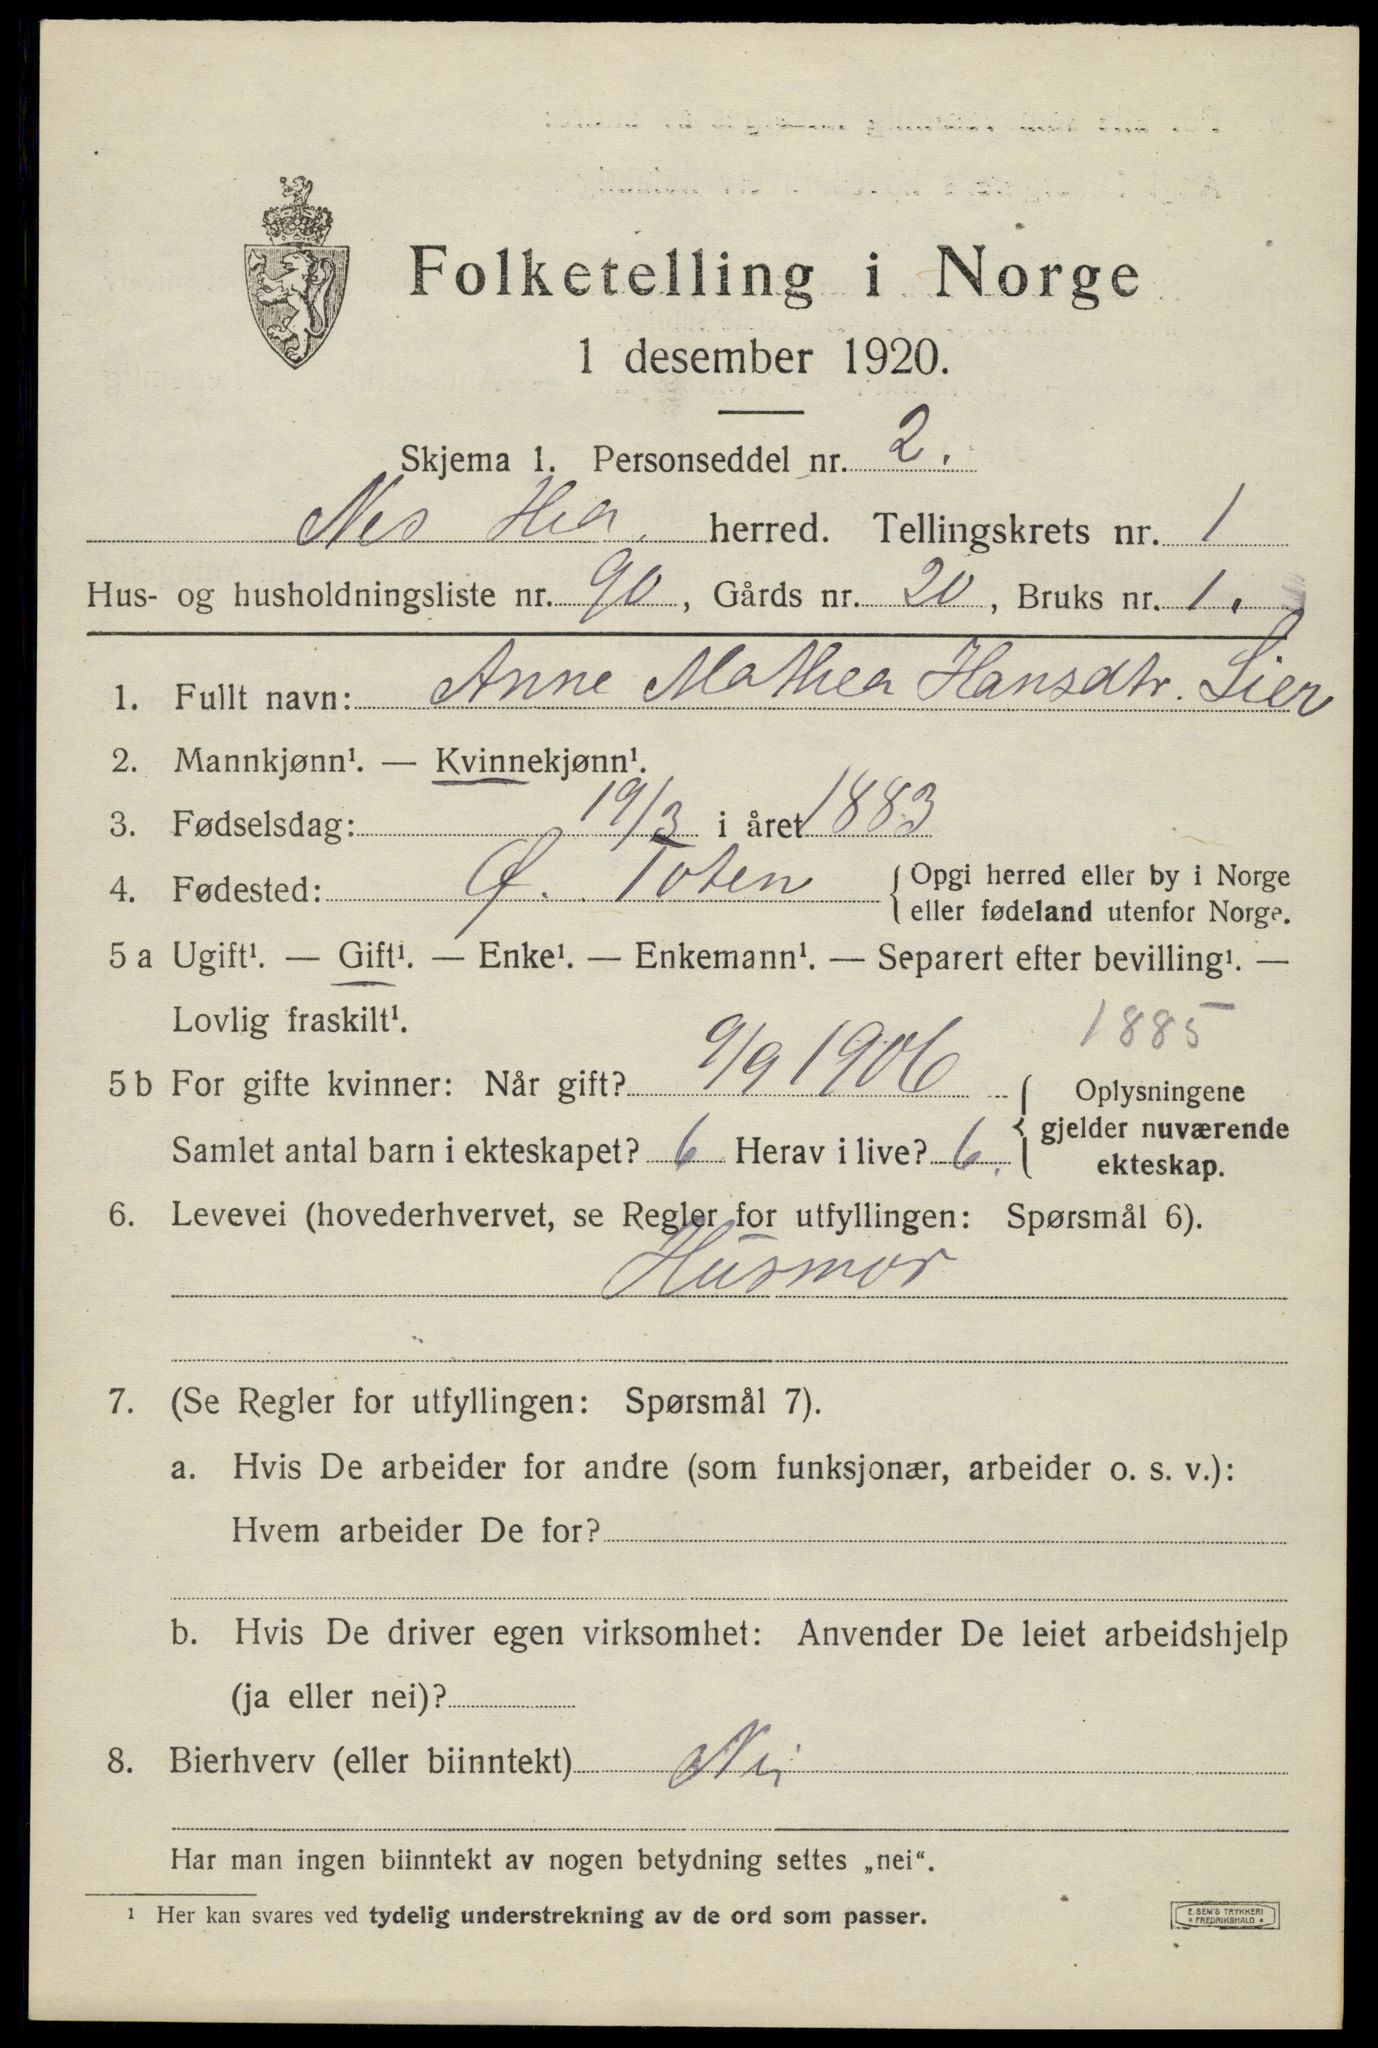 Folketelling i Norge
1 desember 1920.
Skjema 1. Personseddel nr. 2.
Nes Hea. herred. Tellingskrets nr. 1
Hus- og husholdningsliste nr. 90, Gårds nr. 20, Bruks nr. 1.
1. Fullt navn: Anne Mathea Hansdtr. Lier
2. Mannkjønn¹. — Kvinnekjønn¹.
3. Fødselsdag: 19/3 i året 1883
4. Fødested: Ø. Toten {Opgi herred eller by i Norge
eller fødeland utenfor Norge.
5 a Ugift¹. — Gift¹. — Enke¹. — Enkemann¹. — Separert efter bevilling¹. —
Lovlig fraskilt¹.
1885
5 b For gifte kvinner: Når gift? 9/9 1906 { Oplysningene
gjelder nuværende
Samlet antal barn i ekteskapet? 6 Herav i live? 6. ekteskap.
6. Levevei (hovederhvervet, se Regler for utfyllingen: Spørsmål 6).
Husmor
7. (Se Regler for utfyllingen: Spørsmål 7).
a. Hvis De arbeider for andre (som funksjonær, arbeider o. s. v.):
Hvem arbeider De for?
b. Hvis De driver egen virksomhet: Anvender De leiet arbeidshjelp
(ja eller nei)?
8. Bierhverv (eller biinntekt) Nei
Har man ingen biinntekt av nogen betydning settes „nei“.
¹ Her kan svares ved tydelig understrekning av de ord som passer.
E. SEM'S TRYKKERI
* FREDRIKSHALD *